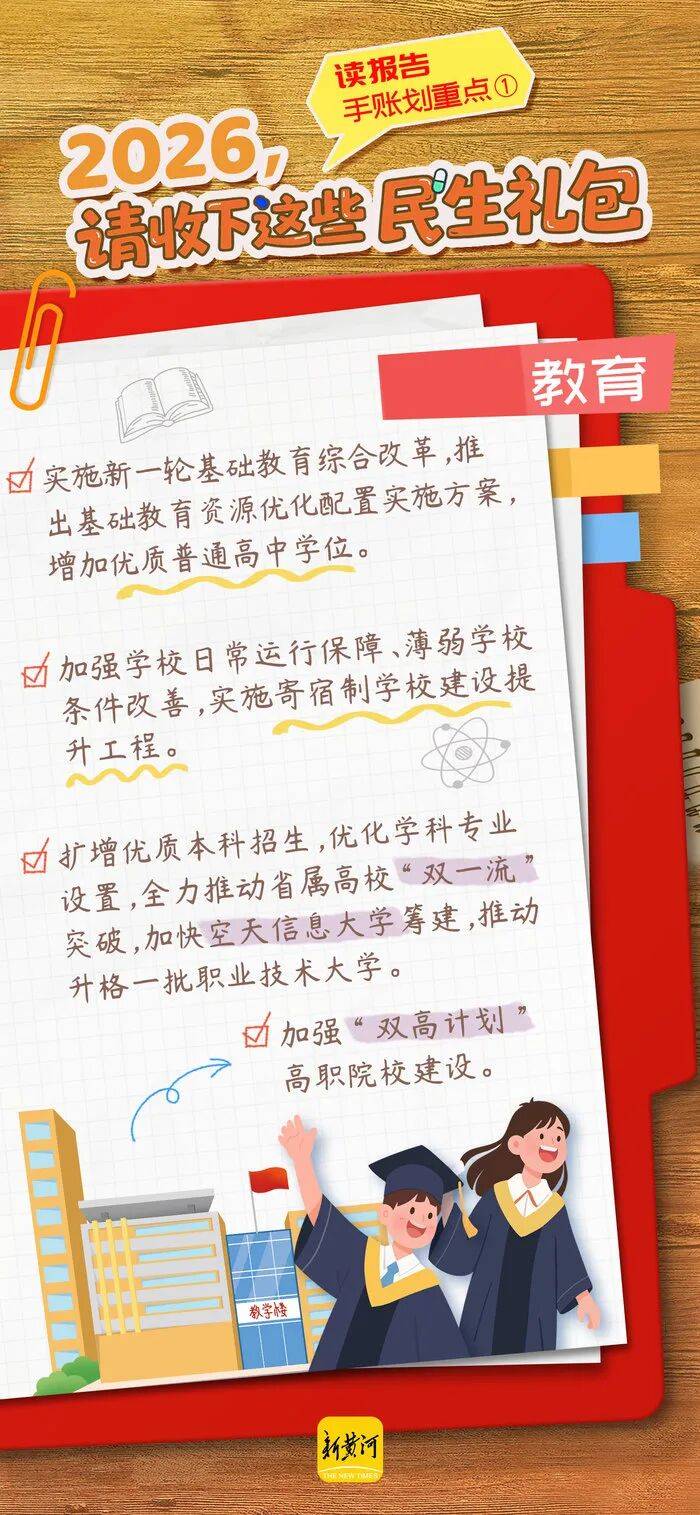 读报告
手账划重点①
2026，
请收下这些民生礼包
教育
实施新一轮基础教育综合改革，推
出基础教育资源优化配置实施方案，
增加优质普通高中学位。
加强学校日常运行保障、薄弱学校
条件改善，实施寄宿制学校建设提
升工程。
扩增优质本科招生，优化学科专业
设置，全力推动省属高校“双一流”
突破，加快空天信息大学筹建，推动
升格一批职业技术大学。
加强“双高计划”
高职院校建设。
教学楼
新黄河
THE NEW TIMES